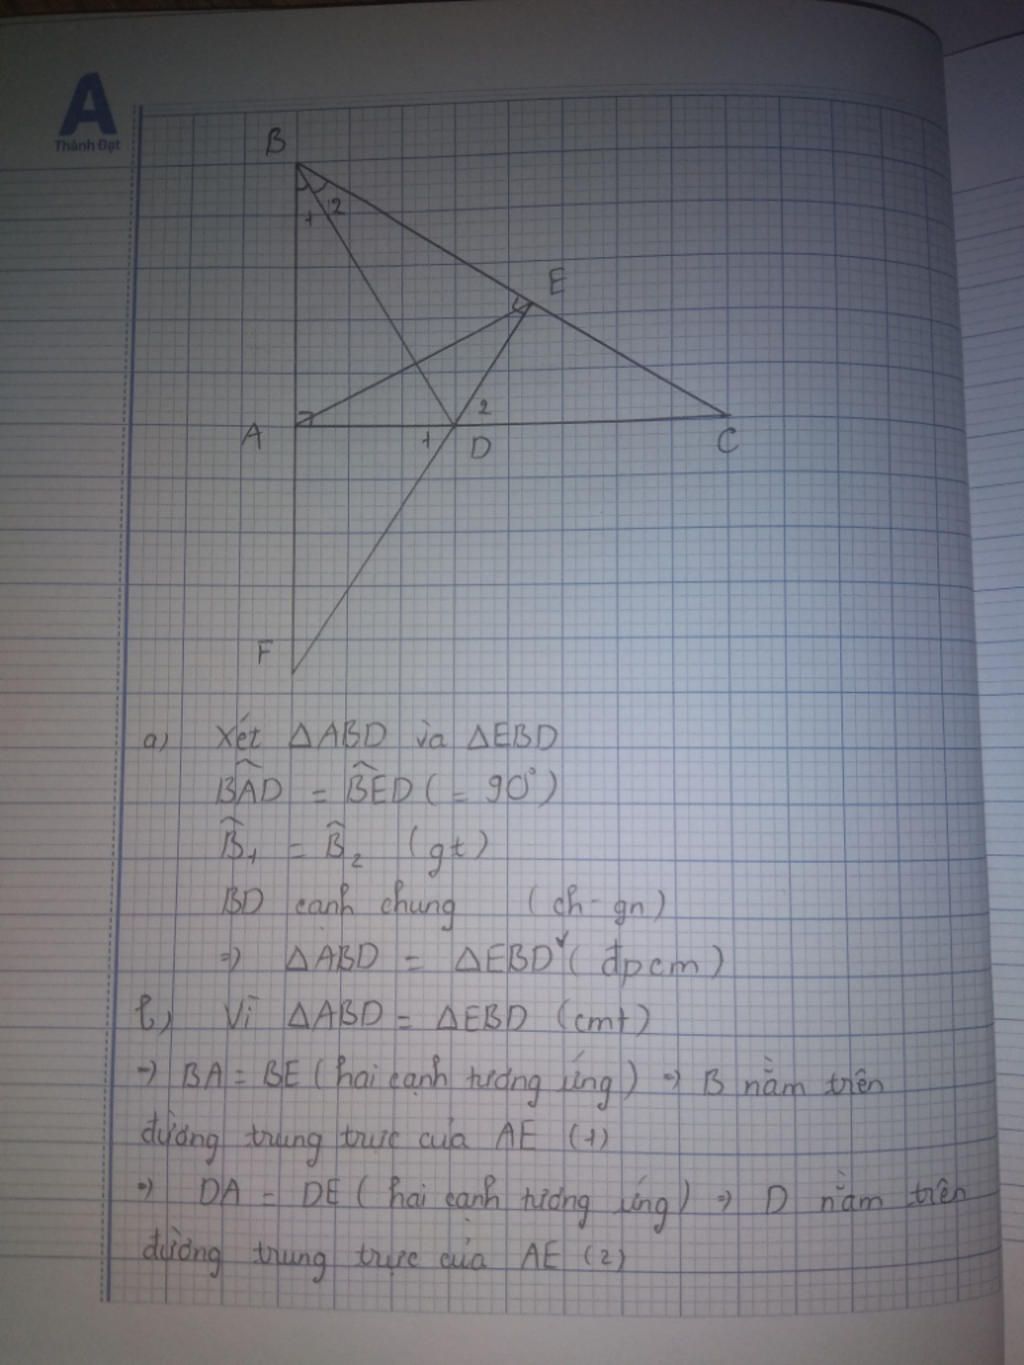 A
Thành Đạt
B
1 2
E
2
A 1 D C
F
a) Xét ΔABD và ΔEBD
B̂AD = B̂ED (= 90°)
B̂₁ = B̂₂ (gt)
BD cạnh chung (ch-gn)
⇒ ΔABD = ΔEBD (đpcm)
b) Vì ΔABD = ΔEBD (cmt)
⇒ BA = BE (hai cạnh tương ứng) ⇒ B nằm trên
đường trung trực của AE (1)
⇒ DA = DE (hai cạnh tương ứng) ⇒ D nằm trên
đường trung trực của AE (2)